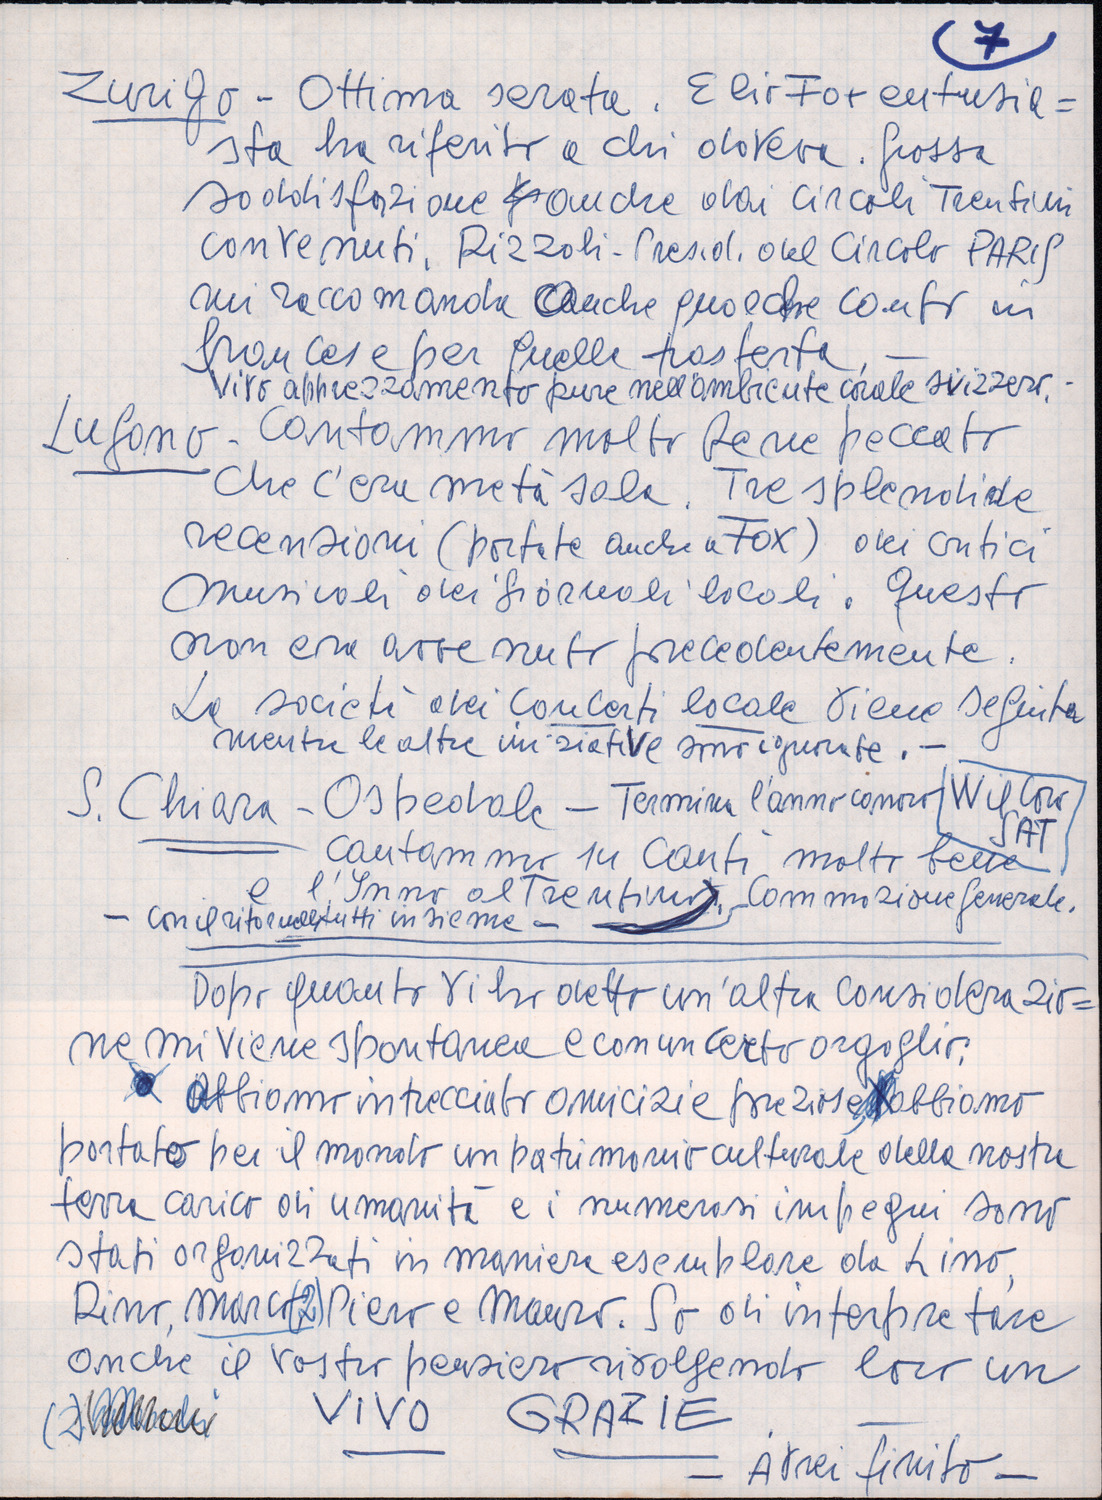 7
Zurigo - Ottima serata. Elio Fox entusia=
sta ha riferito a chi doveva. Grossa
soddisfazione anche dai Circoli Trentini
convenuti. Rizzoli - Presid. del Circolo PARIS
mi raccomanda anche qualche canto in
francese per quella trasferta. —
Vivo apprezzamento pure nell'ambiente corale svizzero. -
Lugano - Cantammo molto bene peccato
che c'era metà sala. Tre splendide
recensioni (portate anche a Fox) dei critici
musicali dei giornali locali. Questo
non era avvenuto precedentemente.
La società dei Concerti locale viene seguita
mentre le altre iniziative sono ignorate. —
S. Chiara - Ospedale — Termina l'anno canoro
Cantammo 14 Canti molto bene
SAT
e l'Inno al Trentino. Commozione Generale.
— con il ritornello tutti insieme —
Dopo quanto vi ho detto un'altra considerazio=
ne mi viene spontanea e con un certo orgoglio:
Abbiamo intrecciato amicizie preziose abbiamo
portato per il mondo un patrimonio culturale della nostra
terra carico di umanità e i numerosi impegni sono
stati organizzati in maniera esemplare da Lino,
Rino, Marco (2) Piero e Mauro. So di interpretare
anche il vostro pensiero rivolgendo loro un
(2) VIVO GRAZIE
— Avrei finito —